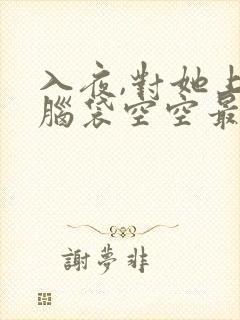 入夜,對她上
腦袋空空最
謝夢非